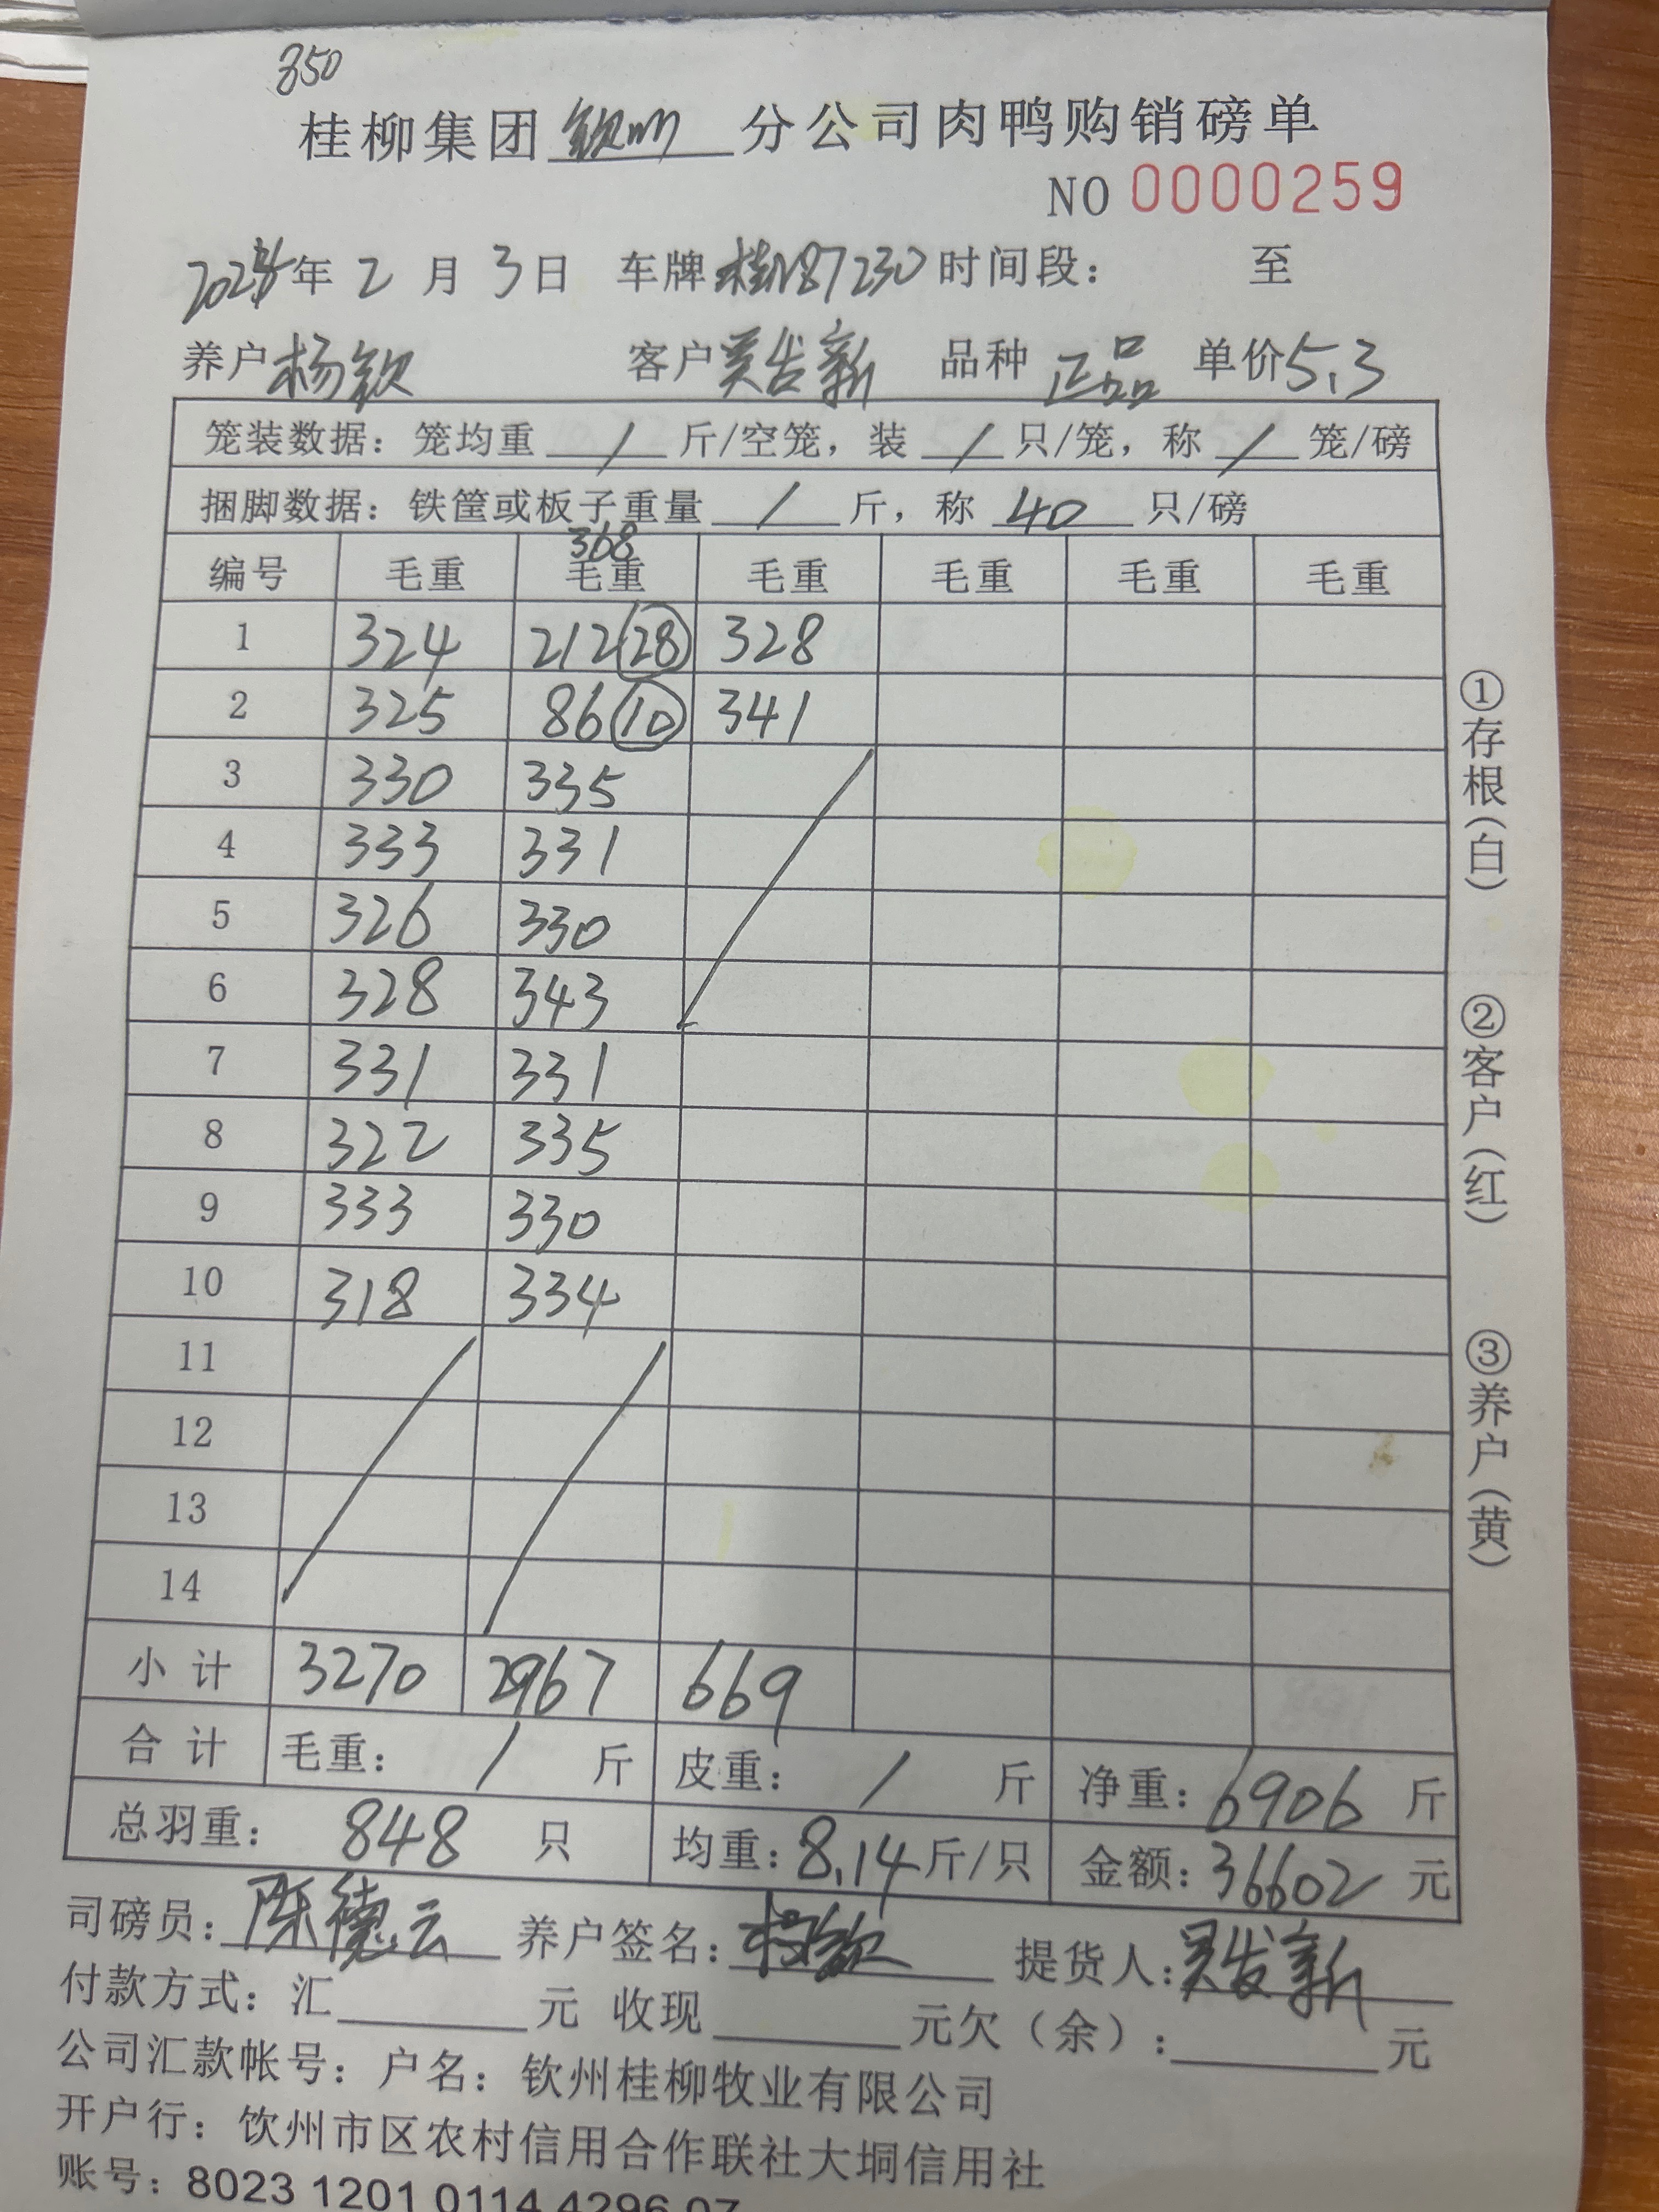 350
桂柳集团钦州分公司肉鸭购销磅单
NO 0000259
2024年2月3日 车牌桂N87230时间段： 至
养户杨钦 客户吴发新 品种 正品 单价5.3
笼装数据：笼均重 / 斤/空笼，装 / 只/笼，称 / 笼/磅
捆脚数据：铁筐或板子重量 / 斤，称 40 只/磅
368
编号 毛重 毛重 毛重 毛重 毛重 毛重
1 324 212 28 328
2 325 86 10 341
3 330 335
4 333 331
5 326 330
6 328 343
7 331 331
8 322 335
9 333 330
10 318 334
11
12
13
14
小计 3270 2967 669
合计 毛重： / 斤 皮重： / 斤 净重：6906 斤
总羽重： 848 只 均重：8.14斤/只 金额：36602 元
司磅员：陈德云 养户签名：杨钦 提货人：吴发新
付款方式：汇 元 收现 元欠（余）： 元
公司汇款帐号：户名：钦州桂柳牧业有限公司
开户行：钦州市区农村信用合作联社大垌信用社
账号：8023 1201 0114 4296 07
①存根（白）
②客户（红）
③养户（黄）